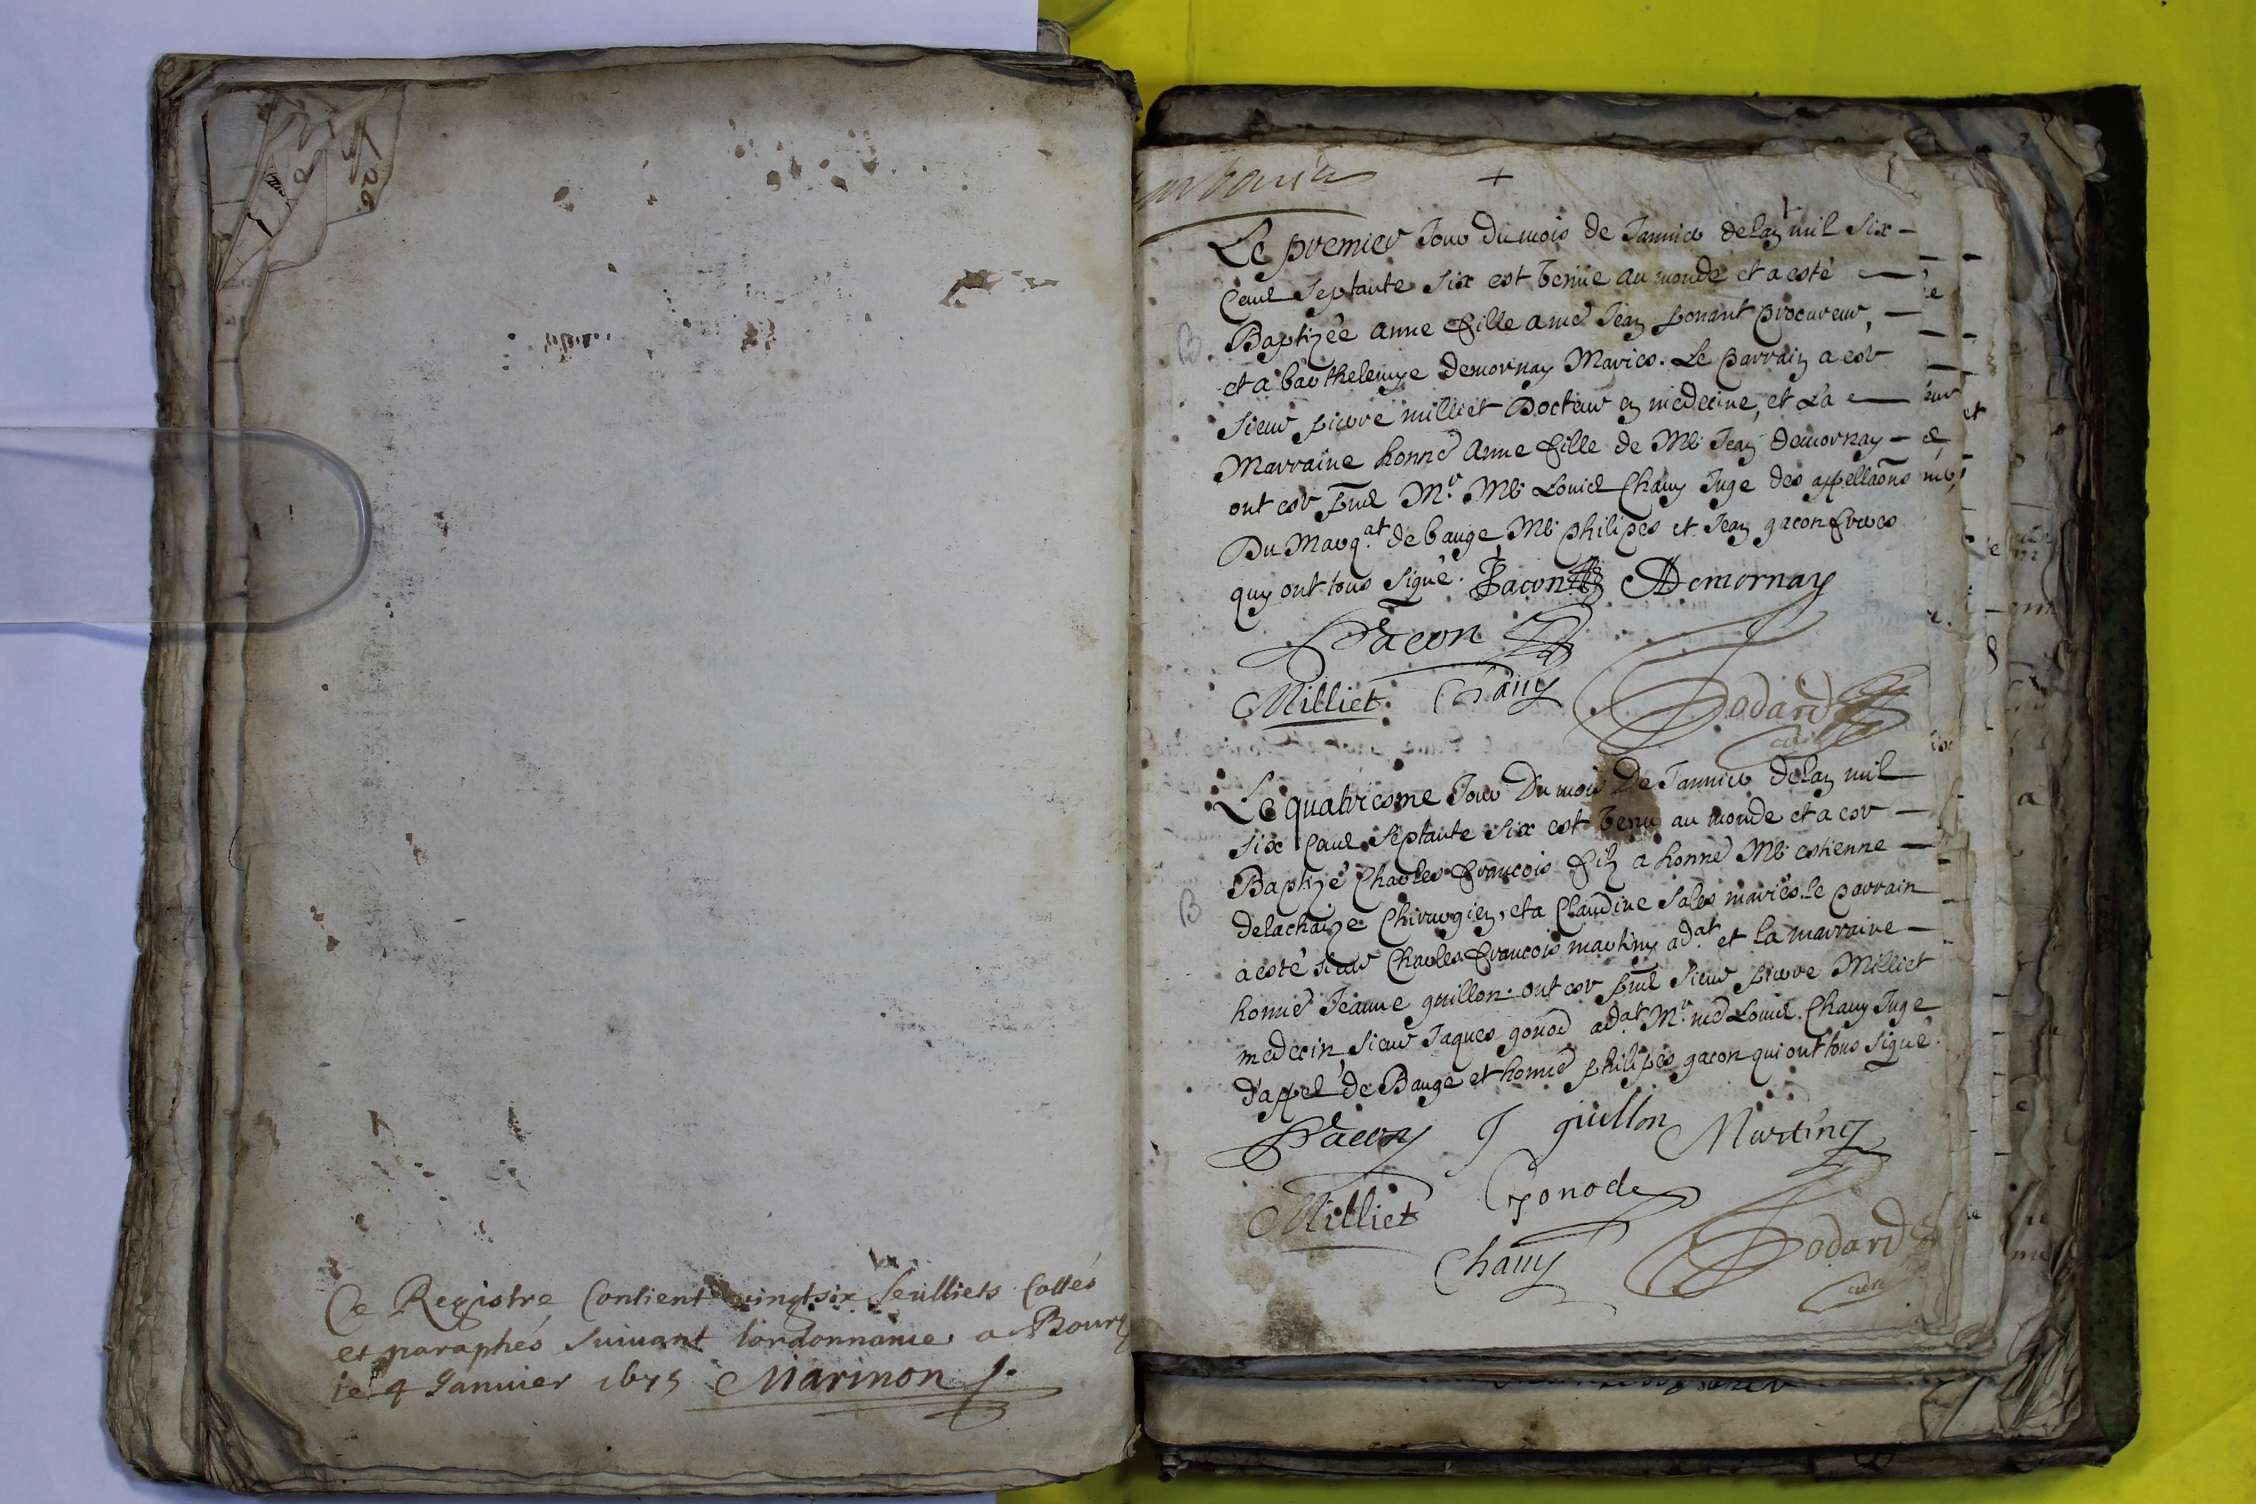 Ce Registre Contient vingtsix feulliets Cottés
et paraphés suivant lordonnance a Bourg
le 4 Janvier 1675 Marinon J.
+
Le premier Jour du mois de Janvier de lan mil six
Cent septante six est venue au monde et a esté
B
Baptizée anne fille a me Jean ponant procureur,
et a barthelemye demornay Mariés. Le parrain a est
sieur pierre milliet Docteur en medecine, et La
Marraine honne anne fille de Me Jean demornay
ont est pnt Mr Me Louis Chauy Juge des appellaons
Du Marqat de bauge, Me philipes et Jean gacon freres
quy ont tous signé. Gacon ADemornay
Gacon
Milliet Chauy Dodard
cu
Le quatriesme Jour du mois de Janvier de lan mil
six Cent septante six est venu au monde et a est
B
Baptizé Charles francois filz a honne Me estienne
delachaize Chirurgien, et a Claudine Sales mariés. le parrain
a esté sieur Charles francois martin adat et la marraine
honne Jeanne guillon. ont est pnt sieur pierre Milliet
medecin, sieur Jaques gonod adat Mr me Louis Chauy Juge
d'appel de Bauge et honne philipes gacon qui ont tous signé.
Gacon J guillon Martin
Milliet Gonod
Chauy Dodard